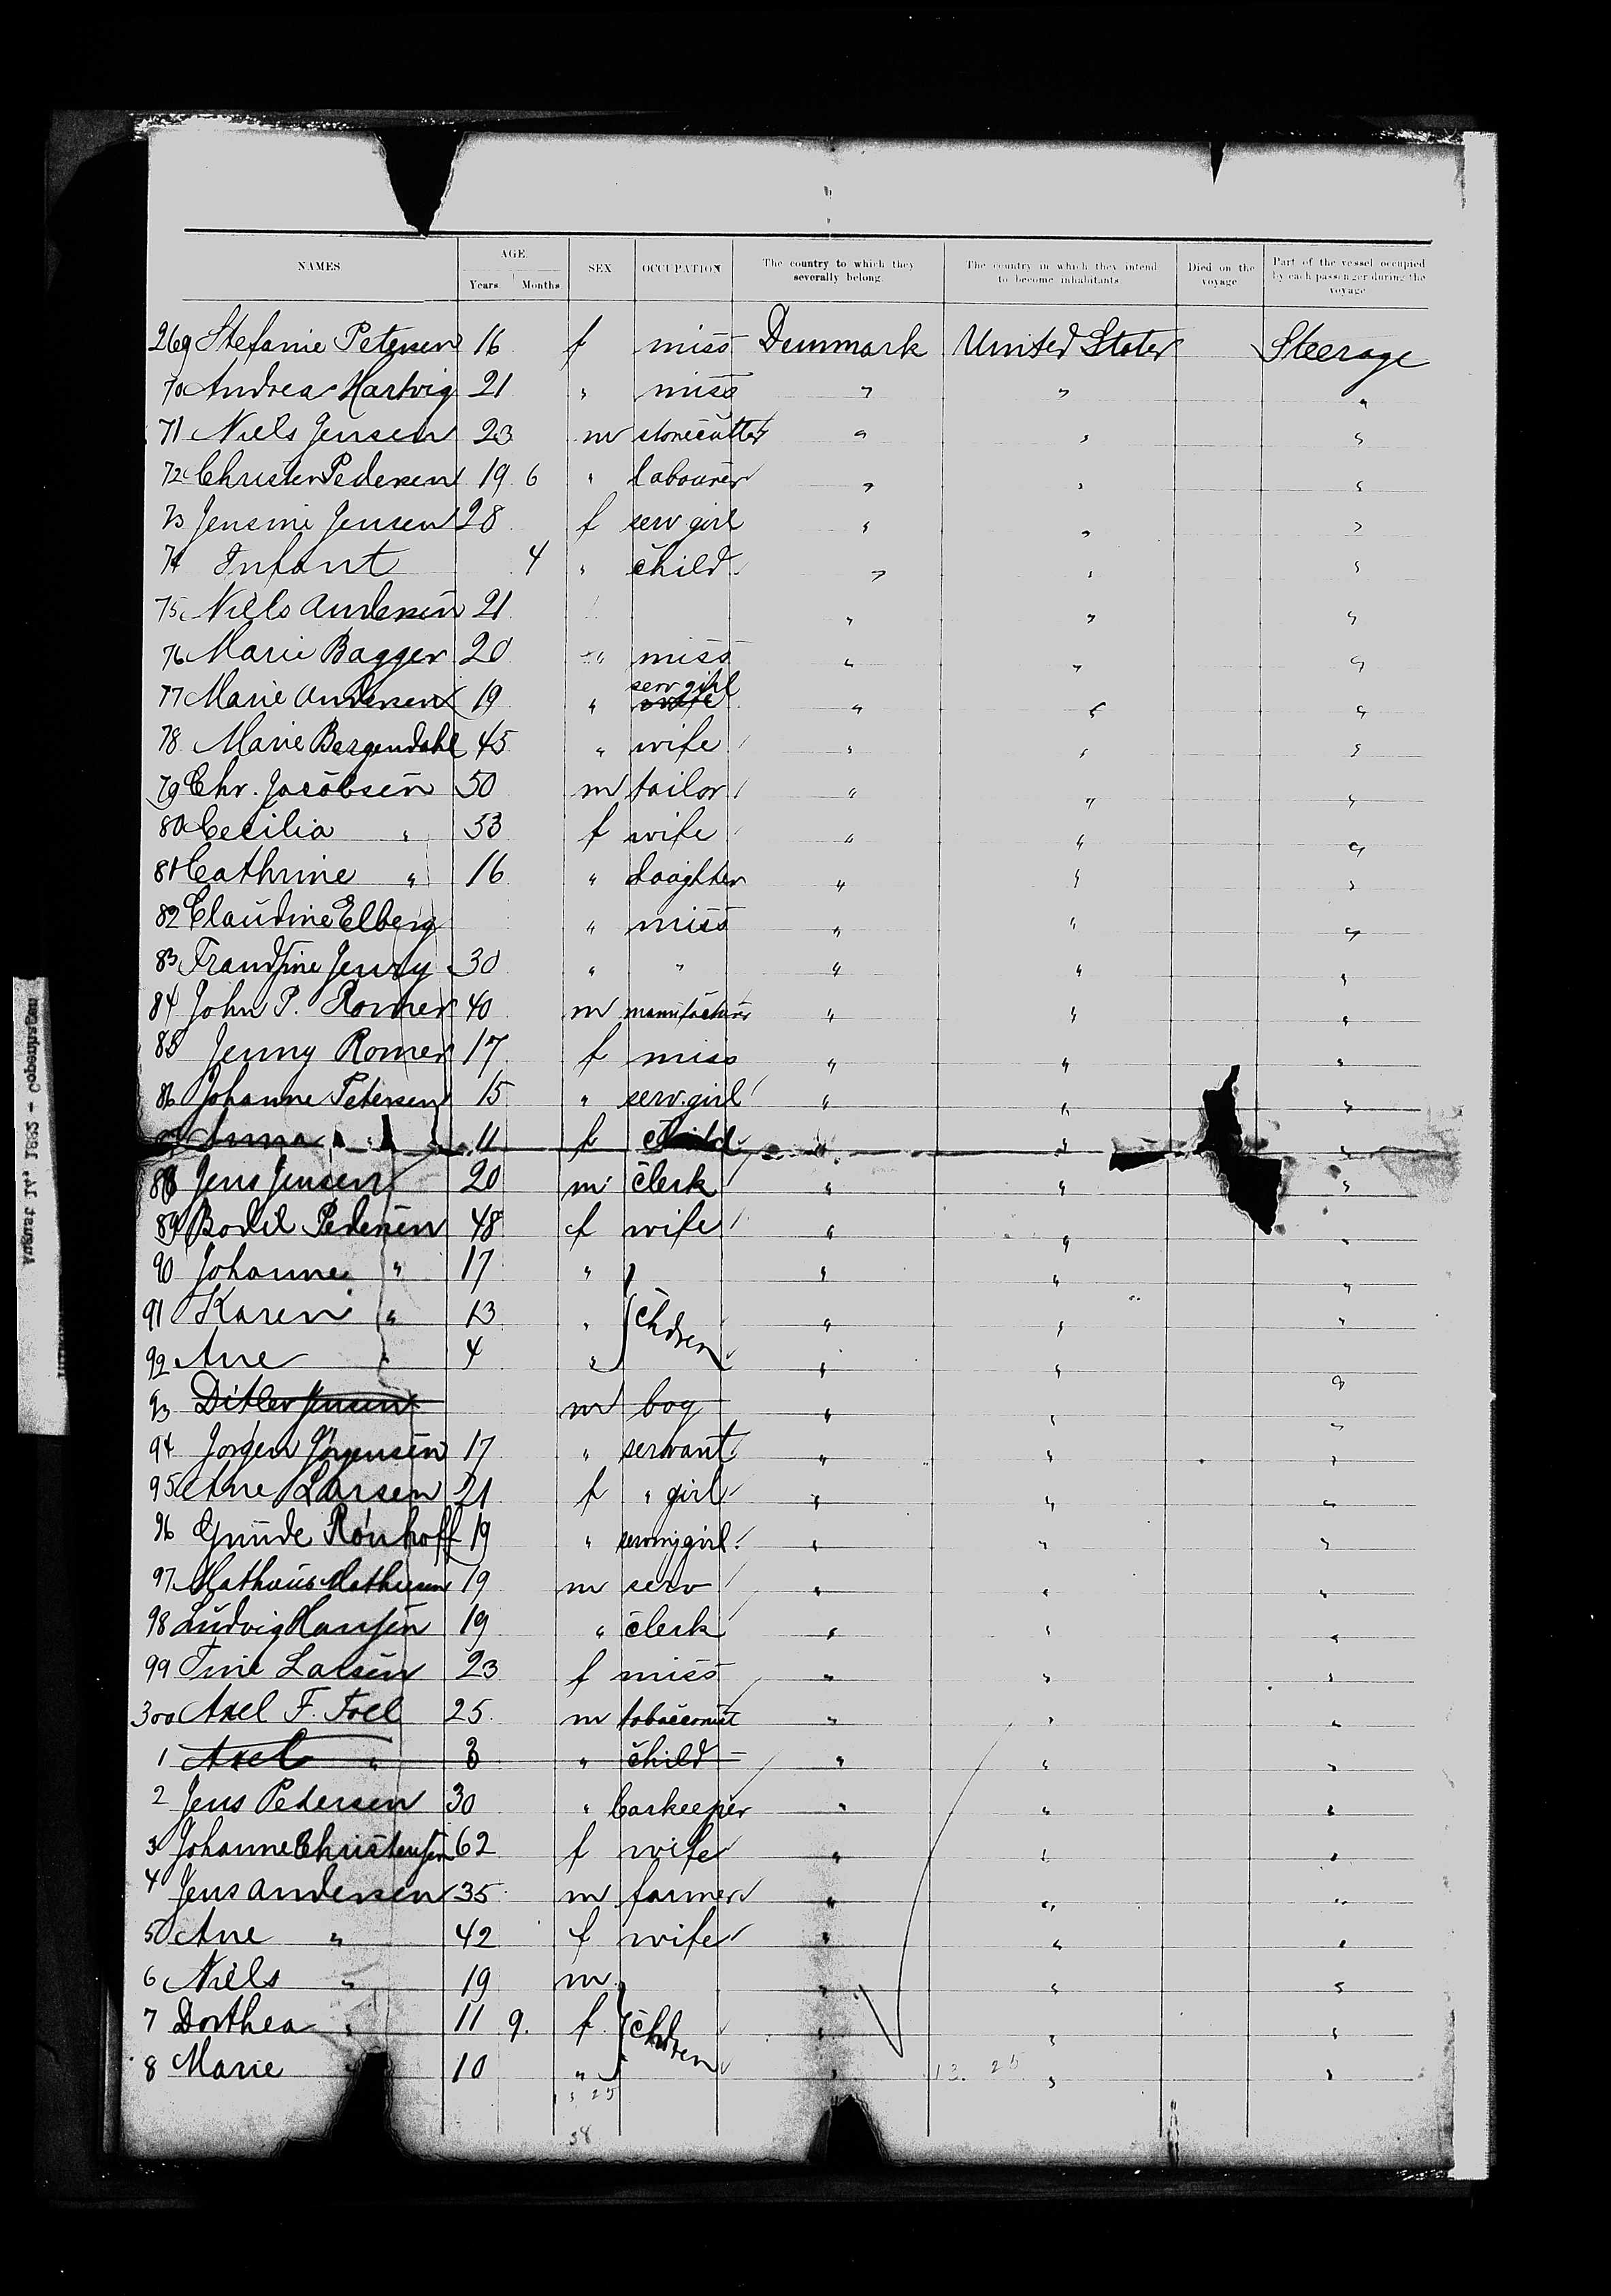 NAMES. AGE. Years. Months SEX OCCUPATION The country to which they severally belong. The country in which they intend to become inhabitants. Died on the voyage Part of the vessel occupied by each passenger during the voyage
269 Stefanie Petersen 16 f miss Denmark United States Steerage
70 Andrea Hartvig 21 " miss " " "
71 Niels Jensen 23 m stonecutter " " "
72 Christen Pedersen 19 6 " labourer " " "
73 Jensine Jensen 28 f serv girl " " "
74 Infant 4 " child " " "
75 Niels Andersen 21 " " "
76 Marie Bagger 20 " miss " " "
77 Marie Andersen 19 " serv girl wife " " "
78 Marie Bergendahl 45 " wife " " "
79 Chr. Jacobsen 50 m tailor " " "
80 Cecilia " 53 f wife " " "
81 Cathrine " 16 " daaghter " " "
82 Claudine Elberg " miss " " "
83 30 " " " " "
84 John P. Romer 40 m " " "
85 Jenny Romer 17 f miss " " "
86 Johanne Petersen 15 " serv. girl " " "
Anna 11 f child " " "
88 Jens Jensen 20 m clerk " " "
89 Bodil Pedersen 48 f wife " " "
90 Johanne " 17 " " " "
91 Karen " 13 " chdren " " "
92 Ane " 4 " " " "
93 Ditlev Jensen m boy " " "
94 Jorgen Jörgensen 17 " servant " " "
95 Ane Larsen 21 f " girl " " "
96 Rönhoff 19 " girl " " "
97 Mathiesen 19 m serv " " "
98 Ludvig Hansen 19 " clerk " " "
99 Tine Larsen 23 f miss " " "
300 Axel F. Foel 25 m tobacconist " " "
1 Axel " 3 " child " " "
2 Jens Pedersen 30 " barkeeper " " "
3 Johanne Christensen 62 f wife " " "
4 Jens Andersen 35 m farmer " " "
5 Ane " 42 f wife " " "
6 Niels " 19 m " " "
7 Dorthea " 11 9. f chdren " " "
8 Marie " 10 " " " "
13. 25
13 25
38